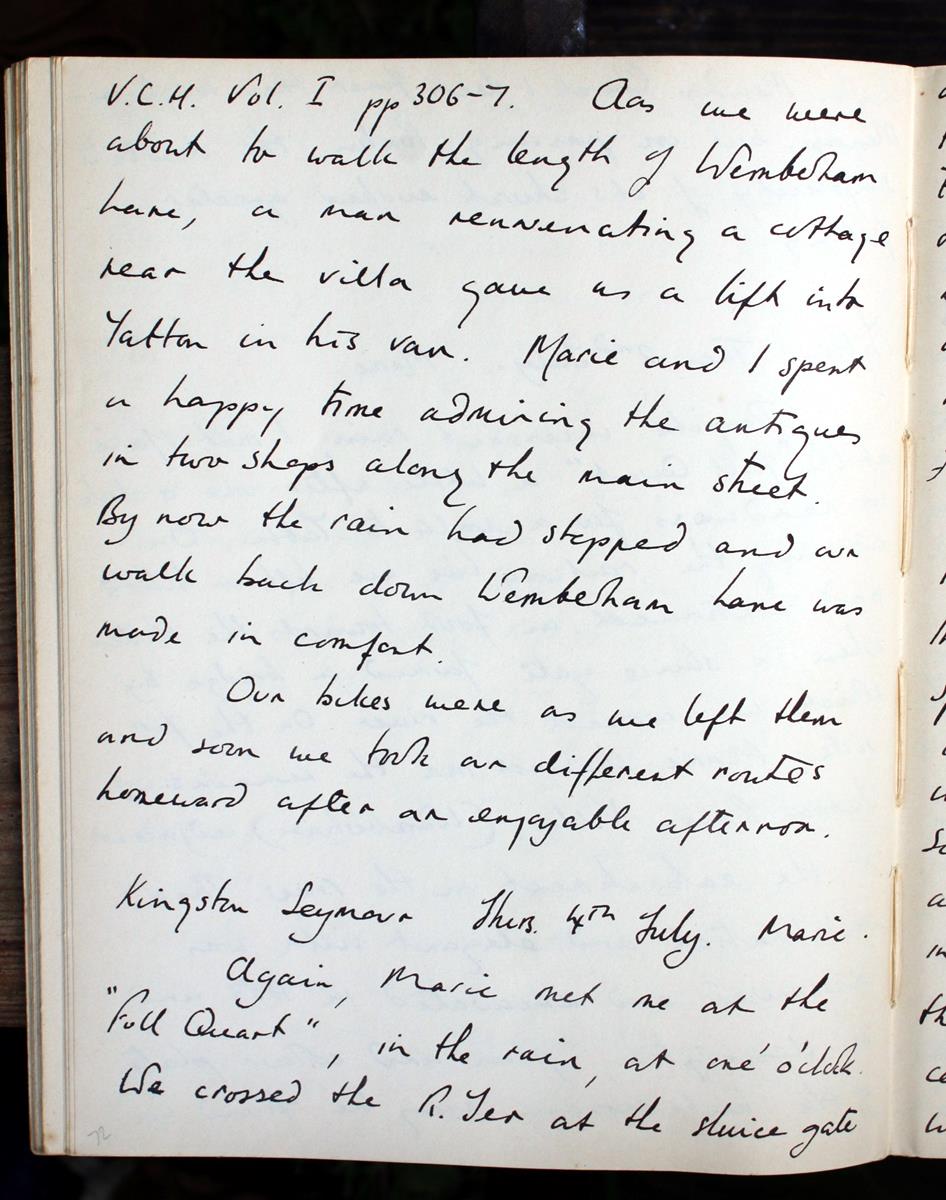 V.C.H. Vol. I pp 306-7. Aas we were
about to walk the length of Wemberham
Lane, a man rennvenating a cottage
near the villa gave us a lift into
Yatton in his van. Marie and I spent
a happy time admiring the antiques
in two shops along the main street.
By now the rain had stopped and our
walk back down Wemberham Lane was
made in comfort.
Our bikes were as we left them
and soon we took our different routes
homeward after an enjoyable afternoon.
Kingston Seymour Thurs. 4th July. Marie.
Again, Marie met me at the
"Full Quart", in the rain, at one o'clock.
We crossed the R. Yeo at the sluice gate
72